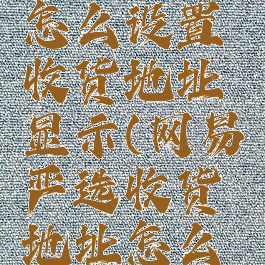 怎么设置
收货地址
显示(网易
严选收货
地址怎么